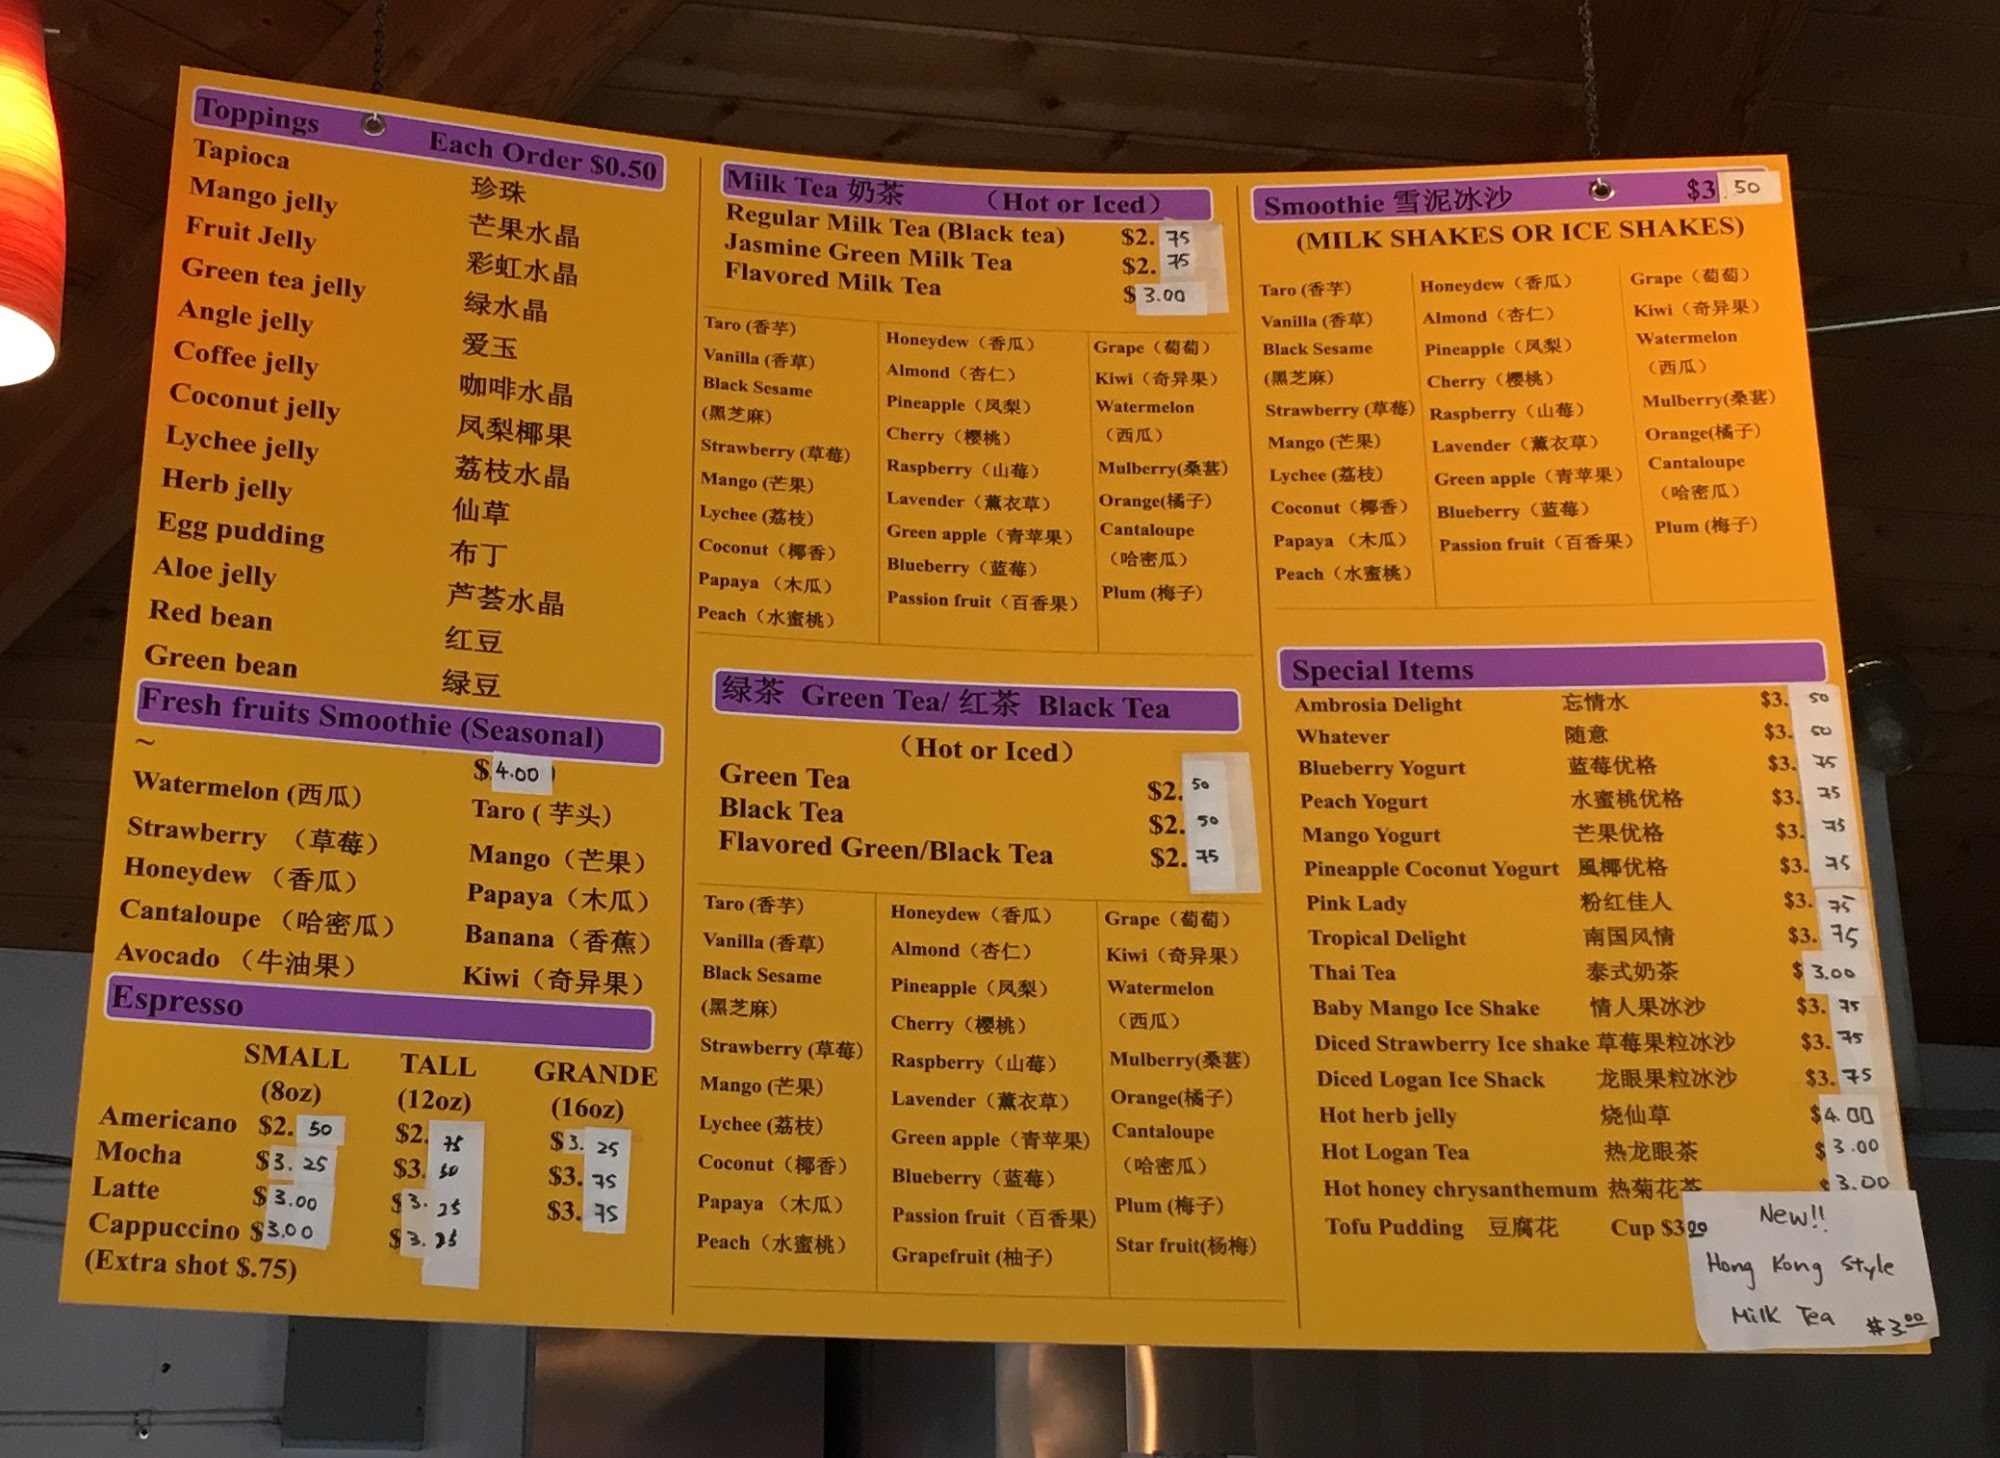 Toppings Each Order $0.50
Tapioca 珍珠
Mango jelly 芒果水晶
Fruit Jelly 彩虹水晶
Green tea jelly 绿水晶
Angle jelly 爱玉
Coffee jelly 咖啡水晶
Coconut jelly 凤梨椰果
Lychee jelly 荔枝水晶
Herb jelly 仙草
Egg pudding 布丁
Aloe jelly 芦荟水晶
Red bean 红豆
Green bean 绿豆
Fresh fruits Smoothie (Seasonal)
~ $4.00
Watermelon (西瓜) Taro ( 芋头)
Strawberry （草莓） Mango（芒果）
Honeydew （香瓜） Papaya（木瓜）
Cantaloupe （哈密瓜） Banana（香蕉）
Avocado （牛油果） Kiwi（奇异果）
Espresso
SMALL TALL GRANDE
(8oz) (12oz) (16oz)
Americano $2. 50 $2. 75 $3. 25
Mocha $3.25 $3. 50 $3. 75
Latte $3.00 $3. 25 $3. 75
Cappuccino $3.00 $3. 25
(Extra shot $.75)
Milk Tea 奶茶 （Hot or Iced）
Regular Milk Tea (Black tea) $2. 75
Jasmine Green Milk Tea $2. 75
Flavored Milk Tea $ 3.00
Taro (香芋)
Vanilla (香草)
Black Sesame
(黑芝麻)
Strawberry (草莓)
Mango (芒果)
Lychee (荔枝)
Coconut（椰香）
Papaya （木瓜）
Peach（水蜜桃）
Honeydew（香瓜）
Almond（杏仁）
Pineapple（凤梨）
Cherry（樱桃）
Raspberry（山莓）
Lavender（薰衣草）
Green apple（青苹果）
Blueberry（蓝莓）
Passion fruit（百香果）
Grape（萄萄）
Kiwi（奇异果）
Watermelon
（西瓜）
Mulberry(桑葚)
Orange(橘子)
Cantaloupe
（哈密瓜）
Plum (梅子)
绿茶 Green Tea/ 红茶 Black Tea
（Hot or Iced）
Green Tea $2. 50
Black Tea $2. 50
Flavored Green/Black Tea $2. 75
Taro (香芋)
Vanilla (香草)
Black Sesame
(黑芝麻)
Strawberry (草莓)
Mango (芒果)
Lychee (荔枝)
Coconut（椰香）
Papaya （木瓜）
Peach（水蜜桃）
Honeydew（香瓜）
Almond（杏仁）
Pineapple（凤梨）
Cherry（樱桃）
Raspberry（山莓）
Lavender（薰衣草）
Green apple（青苹果）
Blueberry（蓝莓）
Passion fruit（百香果）
Grapefruit (柚子)
Grape（萄萄）
Kiwi（奇异果）
Watermelon
（西瓜）
Mulberry(桑葚)
Orange(橘子)
Cantaloupe
（哈密瓜）
Plum (梅子)
Star fruit(杨梅)
Smoothie 雪泥冰沙 $3.50
(MILK SHAKES OR ICE SHAKES)
Taro (香芋)
Vanilla (香草)
Black Sesame
(黑芝麻)
Strawberry (草莓)
Mango (芒果)
Lychee (荔枝)
Coconut（椰香）
Papaya （木瓜）
Peach（水蜜桃）
Honeydew（香瓜）
Almond（杏仁）
Pineapple（凤梨）
Cherry（樱桃）
Raspberry（山莓）
Lavender（薰衣草）
Green apple（青苹果）
Blueberry（蓝莓）
Passion fruit（百香果）
Grape（萄萄）
Kiwi（奇异果）
Watermelon
（西瓜）
Mulberry(桑葚)
Orange(橘子)
Cantaloupe
（哈密瓜）
Plum (梅子)
Special Items
Ambrosia Delight 忘情水 $3. 50
Whatever 随意 $3. 50
Blueberry Yogurt 蓝莓优格 $3. 75
Peach Yogurt 水蜜桃优格 $3. 75
Mango Yogurt 芒果优格 $3. 75
Pineapple Coconut Yogurt 風椰优格 $3. 75
Pink Lady 粉红佳人 $3. 75
Tropical Delight 南国风情 $3. 75
Thai Tea 泰式奶茶 $ 3.00
Baby Mango Ice Shake 情人果冰沙 $3. 75
Diced Strawberry Ice shake 草莓果粒冰沙 $3. 75
Diced Logan Ice Shack 龙眼果粒冰沙 $3. 75
Hot herb jelly 烧仙草 $4.00
Hot Logan Tea 热龙眼茶 $ 3.00
Hot honey chrysanthemum 热菊花茶 $ 3.00
Tofu Pudding 豆腐花 Cup $3.00
New!!
Hong Kong Style
Milk Tea $3.00